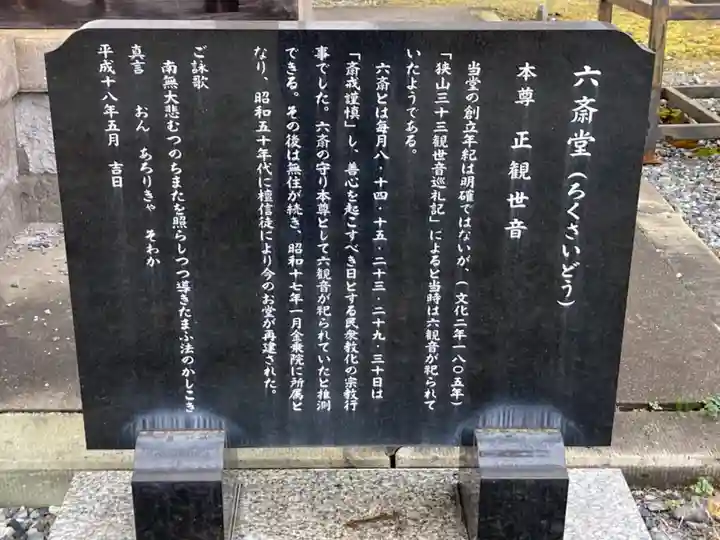 六斎堂(ろくさいどう)
本尊 正観世音
当堂の創立年紀は明確ではないが、(文化二年一八〇五年)
「狭山三十三観世音巡礼記」によると当時は六観音が祀られて
いたようである。
六斎とは毎月八・十四・十五・二十三・二十九・三十日は
「斎戒謹慎」し、善心を起こすべき日とする民衆教化の宗教行
事でした。六斎の守り本尊として六観音が祀られていたと推測
できる。その後は無住が続き、昭和十七年一月金乗院に所属と
なり、昭和五十年代に檀信徒により今のお堂が再建された。
ご詠歌
南無大悲むつのちまたを照らしつつ導きたまふ法のかしこき
真言 おん あろりきゃ そわか
平成十八年五月 吉日